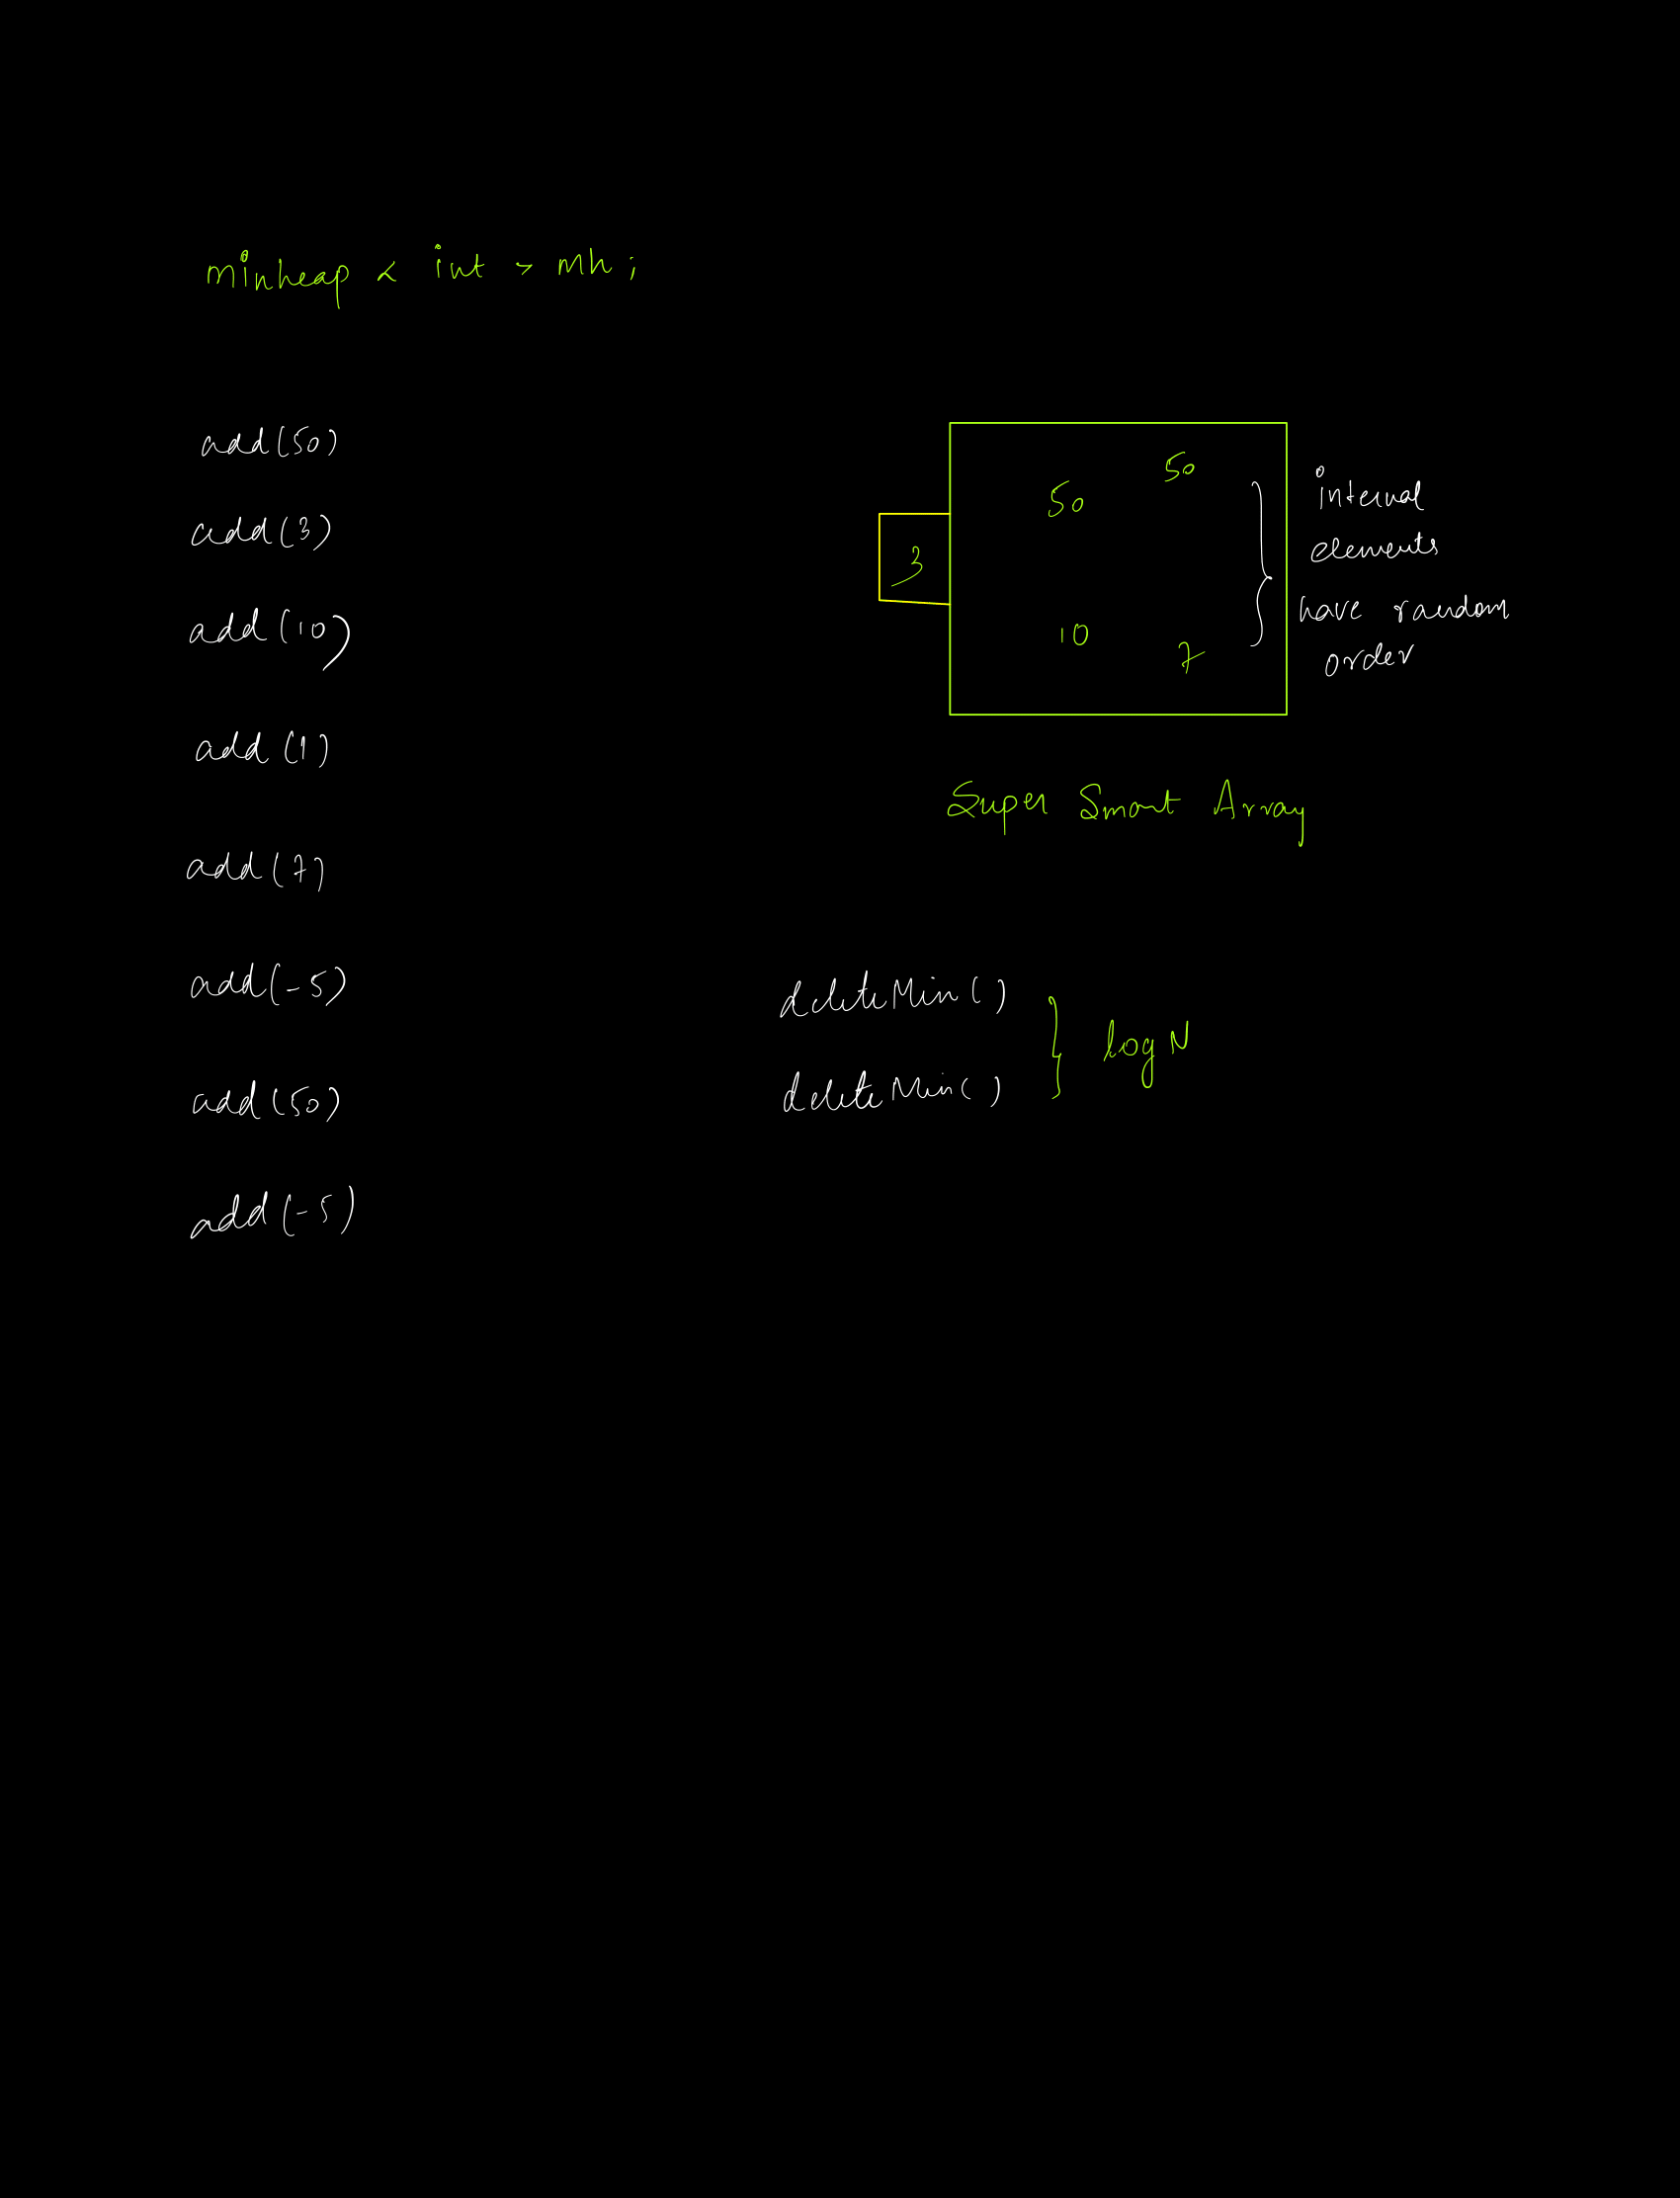 minheap < int > mh;
add(50)
add(3)
add(10)
add(1)
add(7)
add(-5)
add(50)
add(-5)
50
50
3
10
7
internal
elements
have random
order
Super Smart Array
deleteMin()
deleteMin()
log N